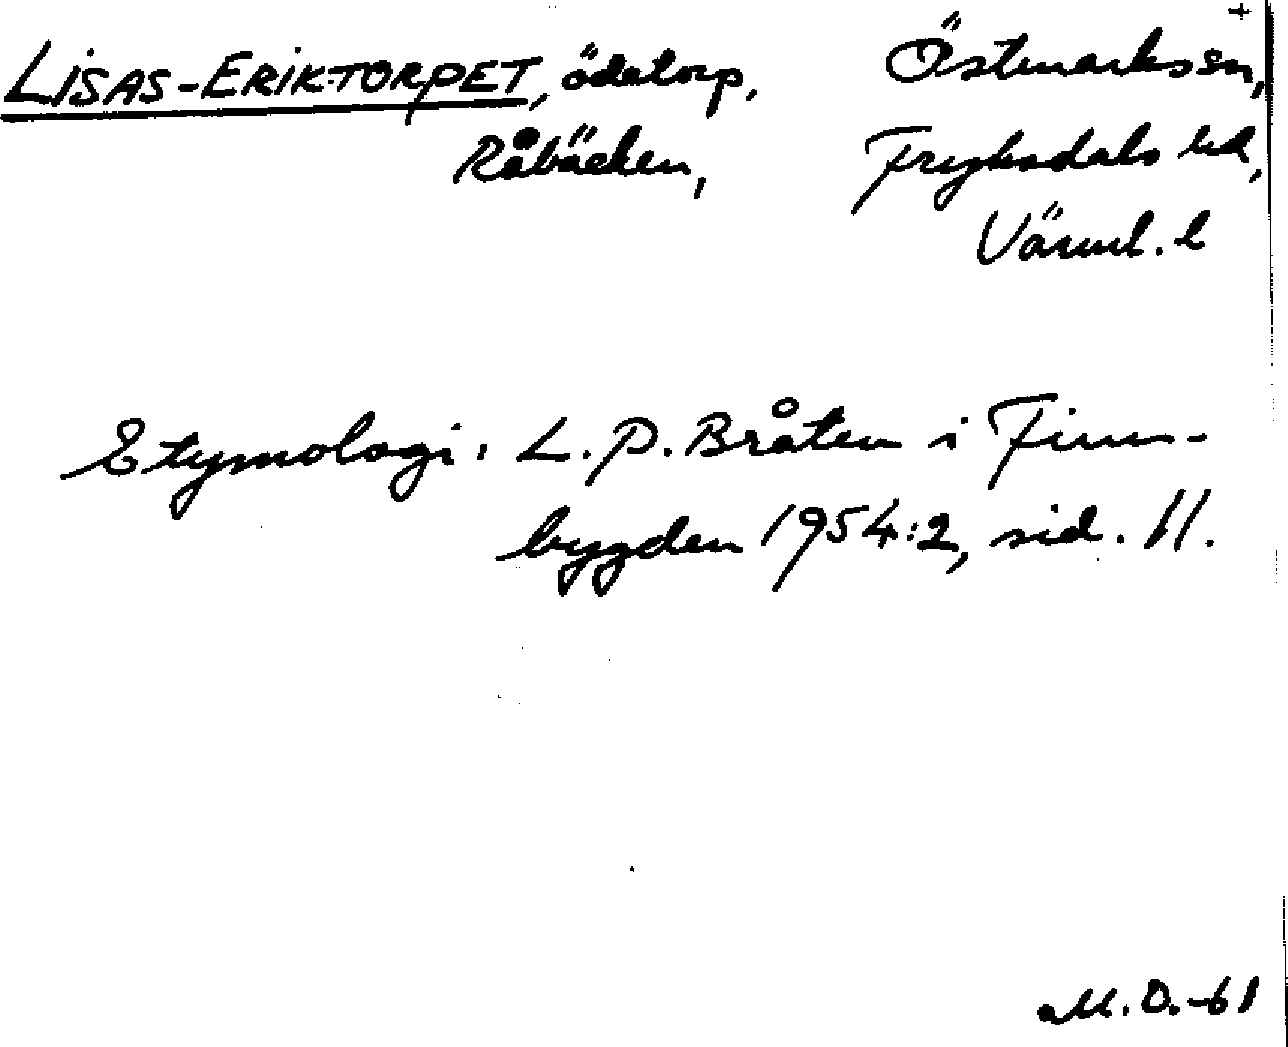 +
LISAS-ERIKTORPET, ödetorp, Östmarks sn,
Råbäcken, Fryksdals hd,
Värml. l
Etymologi: L. P. Bråten i Finn-
bygden 1954:2, sid. 11.
M.O.-61